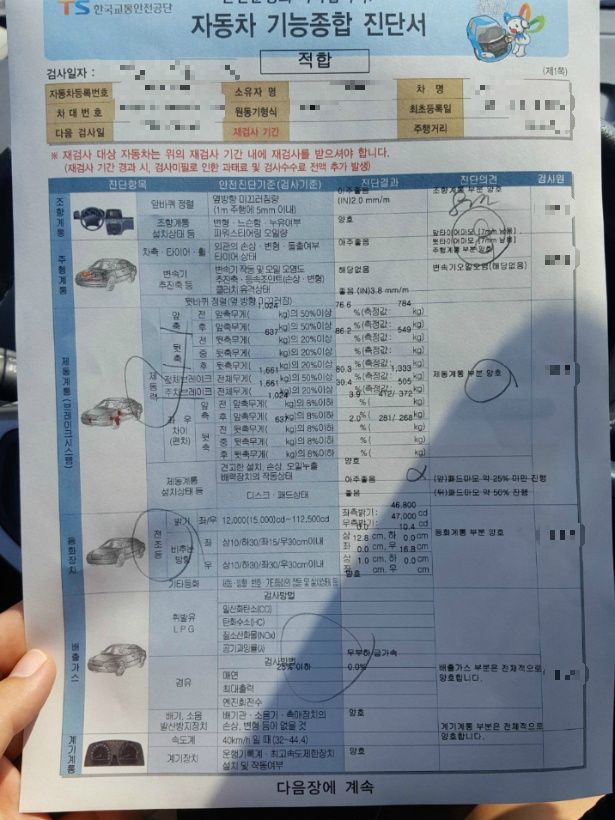 TS 한국교통안전공단
자동차 기능종합 진단서
적합
검사일자 :
(제1쪽)
자동차등록번호 소유자 명 차 명
차 대 번 호 원동기형식 최초등록일
다음 검사일 재검사 기간 주행거리
※ 재검사 대상 자동차는 위의 재검사 기간 내에 재검사를 받으셔야 합니다.
(재검사 기간 경과 시, 검사미필로 인한 과태료 및 검사수수료 전액 추가 발생)
진단항목 안전진단기준(검사기준) 진단결과 진단의견 검사원
조향계통
앞바퀴 정렬
옆방향 미끄러짐량
(1m 주행에 5mm 이내)
아주좋음
(IN)2.0 mm/m
조향계통 부분 양호
조향계통
설치상태 등
변형·느슨함·누유여부
파워스티어링 오일량
양호
주행계통
차축·타이어·휠
외관의 손상·변형·돌출여부
타이어 상태
아주좋음
앞타이어마모 [7mm 남음]
뒷타이어마모 [7mm 남음]
주행계통 부분 양호
변속기
추진축 등
변속기 작동 및 오일 오염도
추진축·등속조인트(손상·변형)
클러치 유격상태
해당없음
변속기오일오염(해당없음)
뒷바퀴 정렬(옆 방향 미끄러짐)
좋음 (IN)3.8 mm/m
제동계통(브레이크시스템)
제동력
앞축 전 앞축무게( 1,024 kg)의 50%이상 76.6 %(측정값: 784 kg)
후 앞축무게( kg)의 50%이상 %(측정값: kg)
뒷축 전 뒷축무게( 637 kg)의 20%이상 86.2 %(측정값: 549 kg)
중 뒷축무게( kg)의 20%이상 %(측정값: kg)
후 뒷축무게( kg)의 20%이상 %(측정값: kg)
전체브레이크 전체무게( 1,661 kg)의 50%이상 80.3 %(측정값: 1,333 kg)
주차브레이크 전체무게( 1,661 kg)의 20%이상 30.4 %(측정값: 505 kg)
제동계통 부분 양호
좌우 차이 (편차)
앞축 전 앞축무게( 1,024 kg)의 8%이하 3.9 %( 412/ 372 kg)
후 앞축무게( kg)의 8%이하 %( kg)
뒷축 전 뒷축무게( 637 kg)의 8%이하 2.0 %( 281/ 268 kg)
중 뒷축무게( kg)의 8%이하 %( kg)
후 뒷축무게( kg)의 8%이하 %( kg)
제동계통
설치상태 등
견고한 설치, 손상, 오일누출
배력장치의 작동상태
양호
디스크·패드상태
아주좋음
좋음
(앞)패드마모 약 25% 미만 진행
(뒤)패드마모 약 50% 진행
등화장치
전조등
밝기 좌/우 12,000(15,000)cd~112,500cd
좌측밝기: 46,800 cd
우측밝기: 47,000 cd
등화계통 부분 양호
비추는 방향
좌 상10/하30/좌15/우30cm이내
상 0.0 cm, 하 10.4 cm
좌 12.8 cm, 우 0.0 cm
우 상10/하30/좌30/우30cm이내
상 0.0 cm, 하 16.8 cm
좌 1.0 cm, 우 0.0 cm
기타등화
양호
배출가스
휘발유
L P G
검사방법
일산화탄소(CO)
탄화수소(HC)
질소산화물(NOx)
공기과잉률(λ)
경유
검사방법
무부하급가속
매연 25%이하 0.0%
최대출력
엔진회전수
배출가스 부분은 전체적으로
양호합니다.
배기, 소음
발산방지장치
배기관·소음기·촉매장치의
손상, 변형 등이 없을 것
양호
계기계통
속도계
40km/h 일 때 (32~44.4)
양호
계기계통 부분은 전체적으로
양호합니다.
계기장치
운행기록계·최고속도제한장치
설치 및 작동여부
양호
다음장에 계속